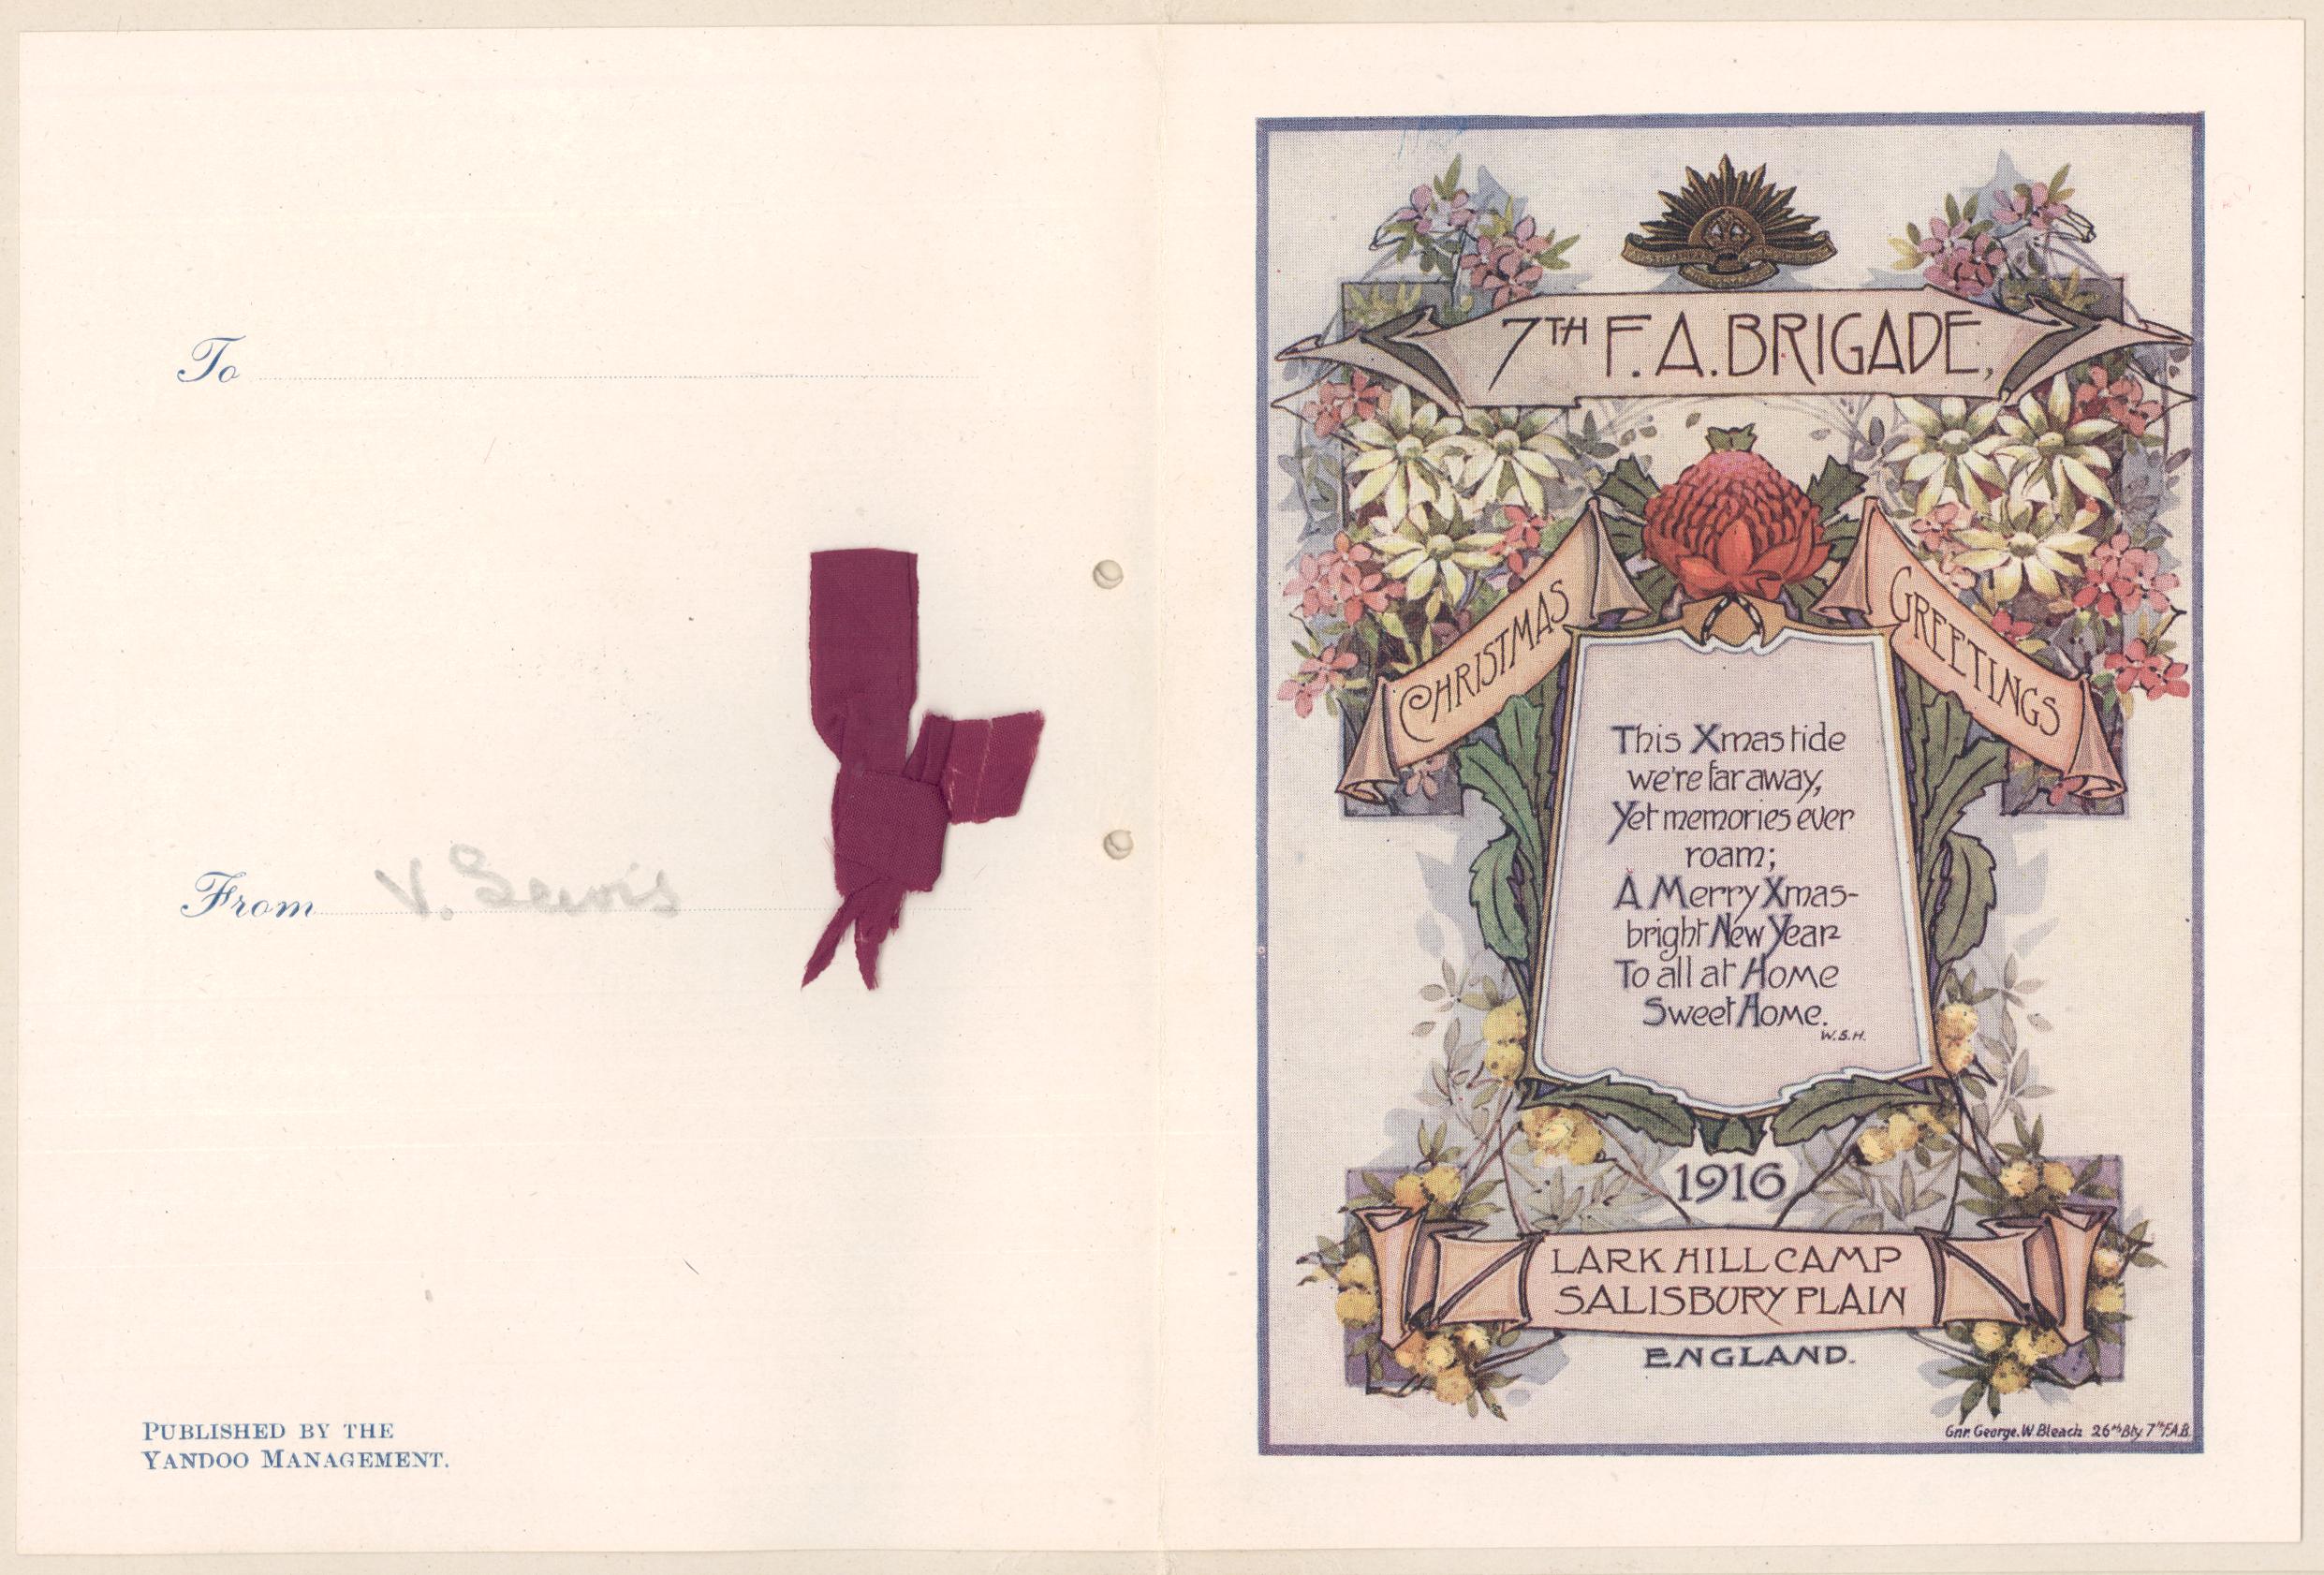 To
From V. Lewis
PUBLISHED BY THE
YANDOO MANAGEMENT.
7TH F.A. BRIGADE,
CHRISTMAS GREETINGS
This Xmastide
we're far away,
Yet memories ever
roam;
A Merry Xmas-
bright New Year
To all at Home
Sweet Home.
W.S.H.
1916
LARK HILL CAMP
SALISBURY PLAIN
ENGLAND.
Gnr. George. W. Bleach 26th Bty 7th F.A.B.